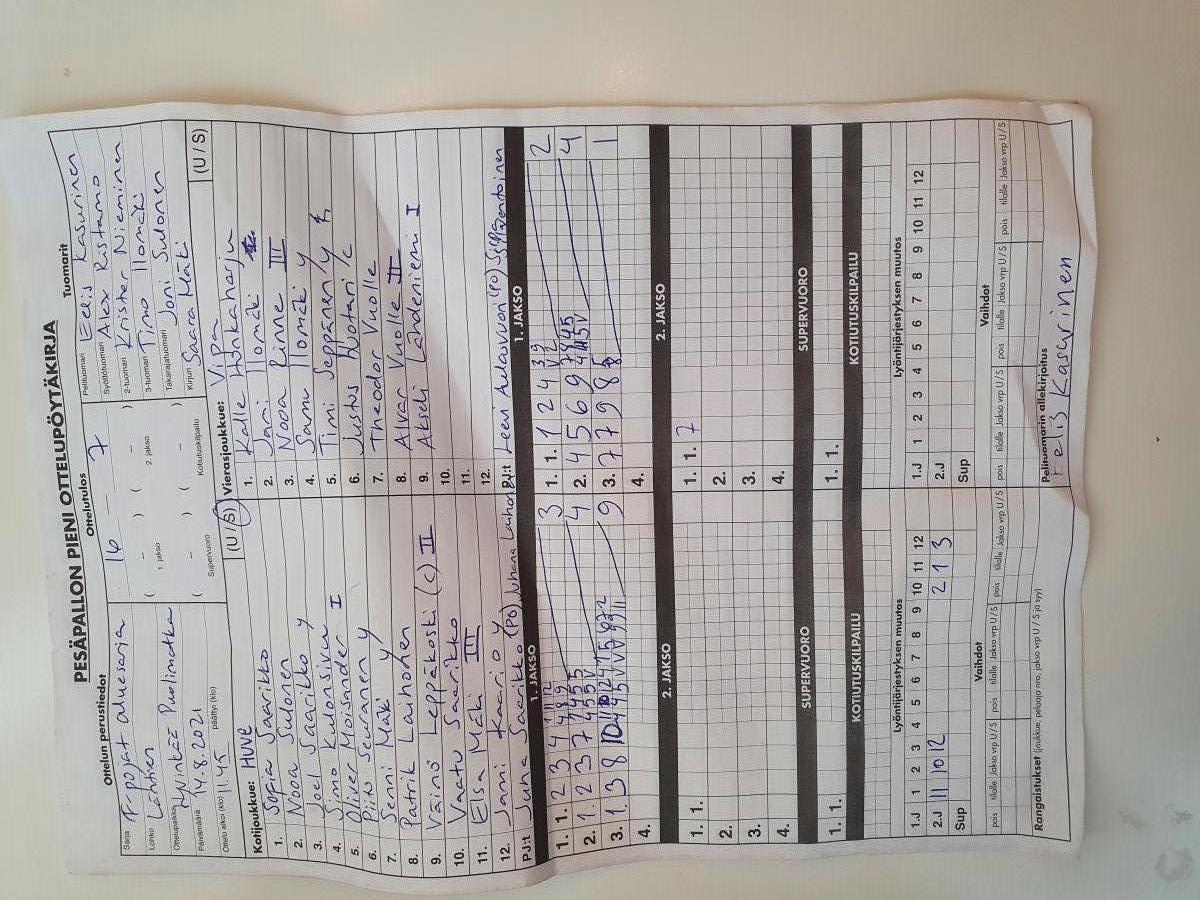 PESÄPALLON PIENI OTTELUPÖYTÄKIRJA
Ottelun perustiedot
Sarja F-pojat aluesarja
Lohko Läntinen
Ottelupaikka Hyvinkää Puolimatka
Päivämäärä 14.8.2021
Ottelu alkoi (klo) 11.45 päättyi (klo)
Ottelutulos
16 – 7
( – ) ( – )
1. jakso 2. jakso
( – ) ( – )
Supervuoro Kotiutuskilpailu
Tuomarit
Pelituomari Eelis Kasurinen
Syöttötuomari Alex Ristamo
2-tuomari Krister Nieminen
3-tuomari Timo Ilomäki
Takarajatuomari Joni Sulonen
Kirjuri Saara Mäki
Kotijoukkue: HUVE (U / S)
1. Sofia Saarikko
2. Nooa Sulonen
3. Joel Saarikko y
4. Simo Kulonsivu
5. Oliver Moisander I
6. Piito Seuranen y
7. Senni Mäki y
8. Patrik Laihonen
9. Väinö Leppäkoski (c) II
10. Veatu Saarikko
11. Elsa Mäki III
12. Janni Kaario y
PJ:t Juha Saarikko (PO), Juhana Laihonen
Vierasjoukkue: Vipa (U / S)
1. Kalle Honkaharju
2. Jani Ilomäki
3. Nooa Rinne III
4. Samu Ilomäki y
5. Timi Seppänen y
6. Justus Huotari c
7. Theodor Vuolle
8. Alvar Vuolle II
9. Akseli Lähdeniemi I
10.
11.
12.
PJ:t Leevi Autovuori (PO)
1. JAKSO
1. 1. 2 3 4 3
2. 1 2 3 7 4
3. 1 3 8 9
4.
2. JAKSO
1. 1.
2.
3.
4.
SUPERVUORO
1. 1.
KOTIUTUSKILPAILU
1. JAKSO
1. 1. 1 2 4 2
2. 4 5 6 9 4
3. 7 7 9 8 1
4.
2. JAKSO
1. 1. 7
2.
3.
4.
SUPERVUORO
1. 1.
KOTIUTUSKILPAILU
Lyöntijärjestyksen muutos
1.J 1 2 3 4 5 6 7 8 9 10 11 12
2.J 11 10 12 2 1 3
Sup
Vaihdot
pois tilalle Jakso vrp U / S pois tilalle Jakso vrp U / S pois tilalle Jakso vrp U / S
Lyöntijärjestyksen muutos
1.J 1 2 3 4 5 6 7 8 9 10 11 12
2.J
Sup
Vaihdot
pois tilalle Jakso vrp U / S pois tilalle Jakso vrp U / S pois tilalle Jakso vrp U / S
Rangaistukset (joukkue, pelaaja nro, jakso vrp U / S ja syy)
Pelituomarin allekirjoitus
Eelis Kasurinen